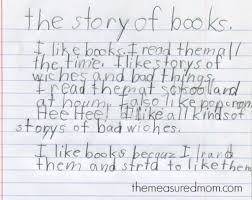 the story of books.
I like books. I read them all
the time. I like storys of
wiches and bad things.
I read them at school and
at houm. I also like popcron.
Hee Hee! I like all kinds of
storys of bad wiches.
I like books becquz I
them and strtd to like them
themeasuredmom.com